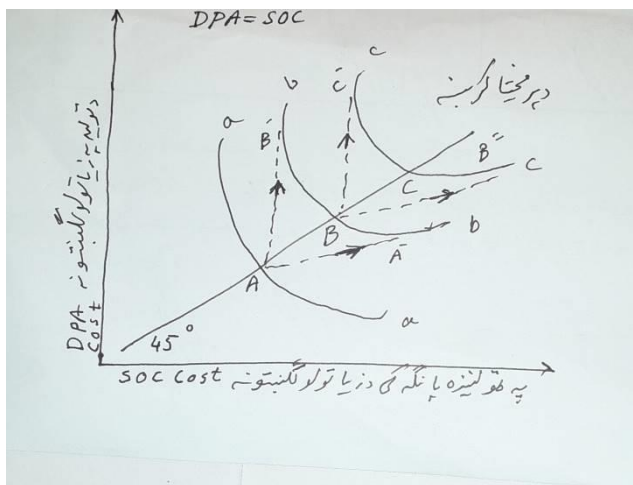 DPA = SOC
c
b
c̄
a
B́
د پرمختیا کرښه
B̋
C
c
B
b
Ā
A
a
45°
DPA Cost د تولید په زیاتولو لګښتونه
SOC Cost په ټولنیزه پانګه کی د زیاتولو لګښتونه